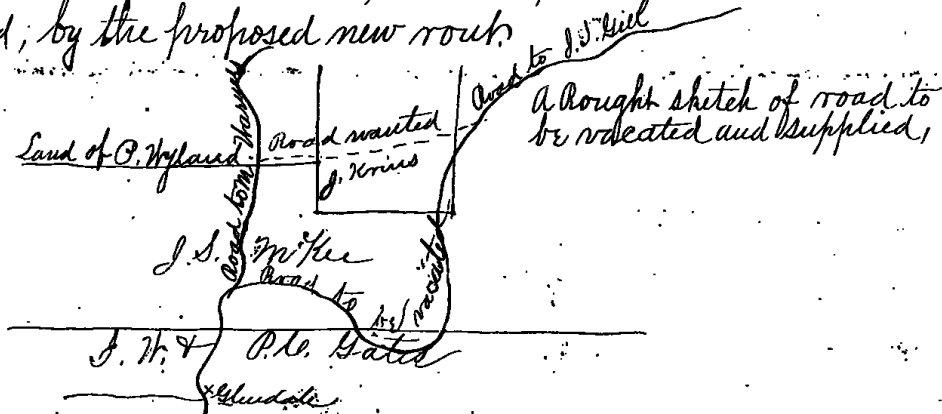 d, by the proposed new rout.
Road to J. S. Giel
A Rought sketch of road to
be vacated and supplied,
Road wanted
Land of P. Wyland
J. Krins
Road to M.
J. S. McKee
Road to be vacated
F. W. & P. C. Gates
Glendale